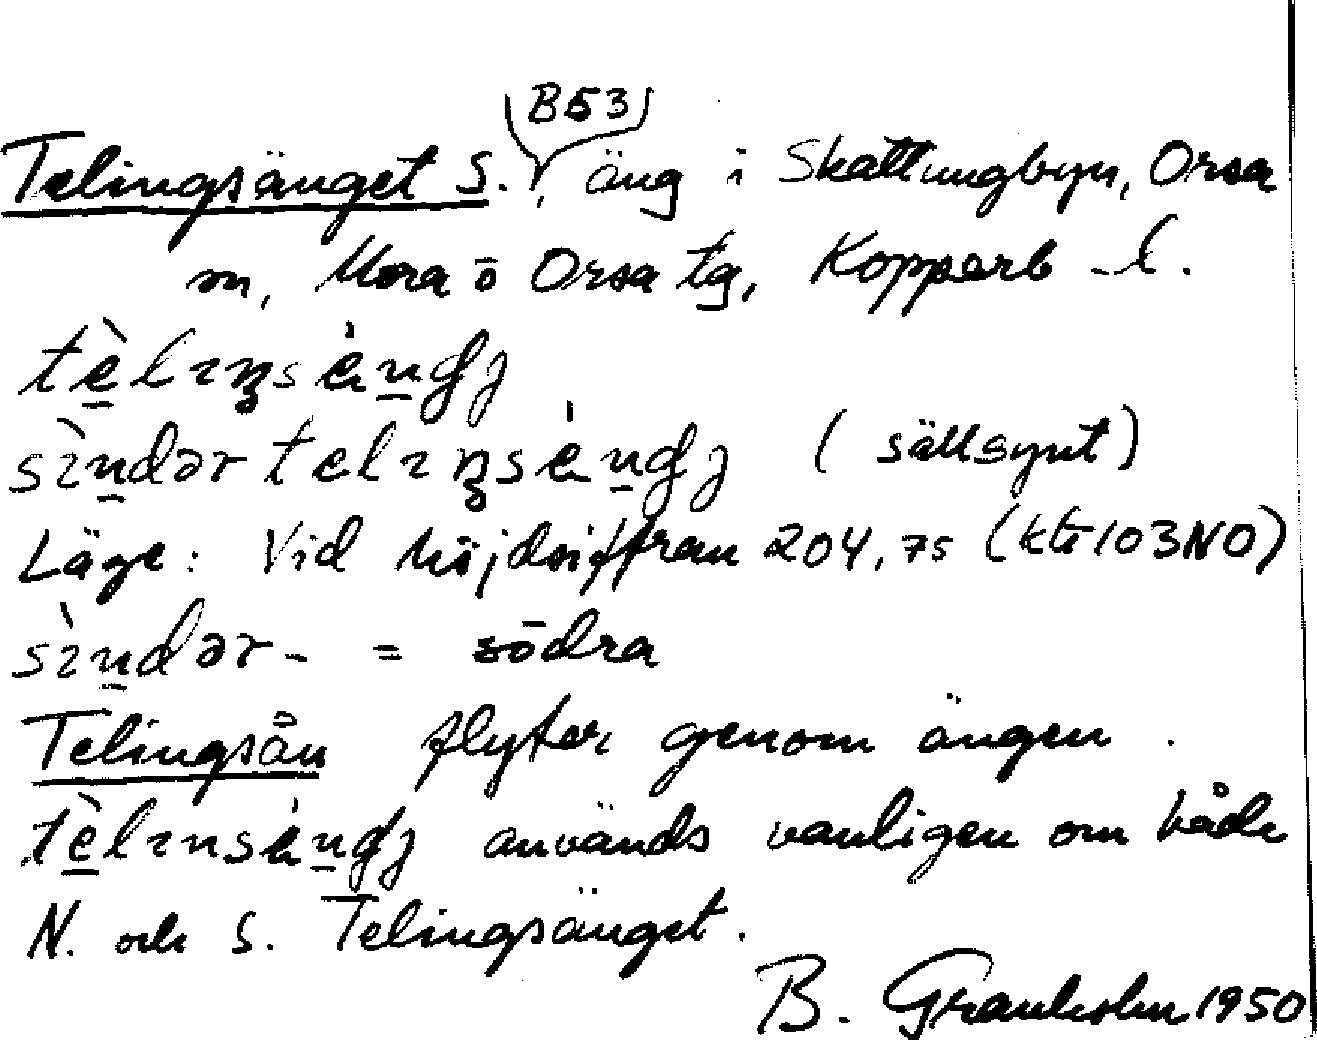 B53
Telingsänget S., äng i Skattungbyn, Orsa
sn, Mora o Orsa tg, Kopparb. l.
tèlıŋsèngɟ
sìndər telıŋsèngɟ (sällsynt)
Läge: Vid höjdsiffran 204,75 (kb 103NO)
sìndər- = södra
Telingsån flyter genom ängen.
tèlınsèngɟ används vanligen om både
N. och S. Telingsänget.
B. Granholm 1950